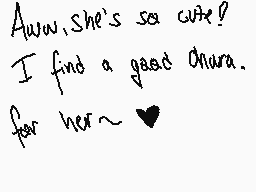 Aww, she's so cute!
I find a good chara.
for her~ ♥